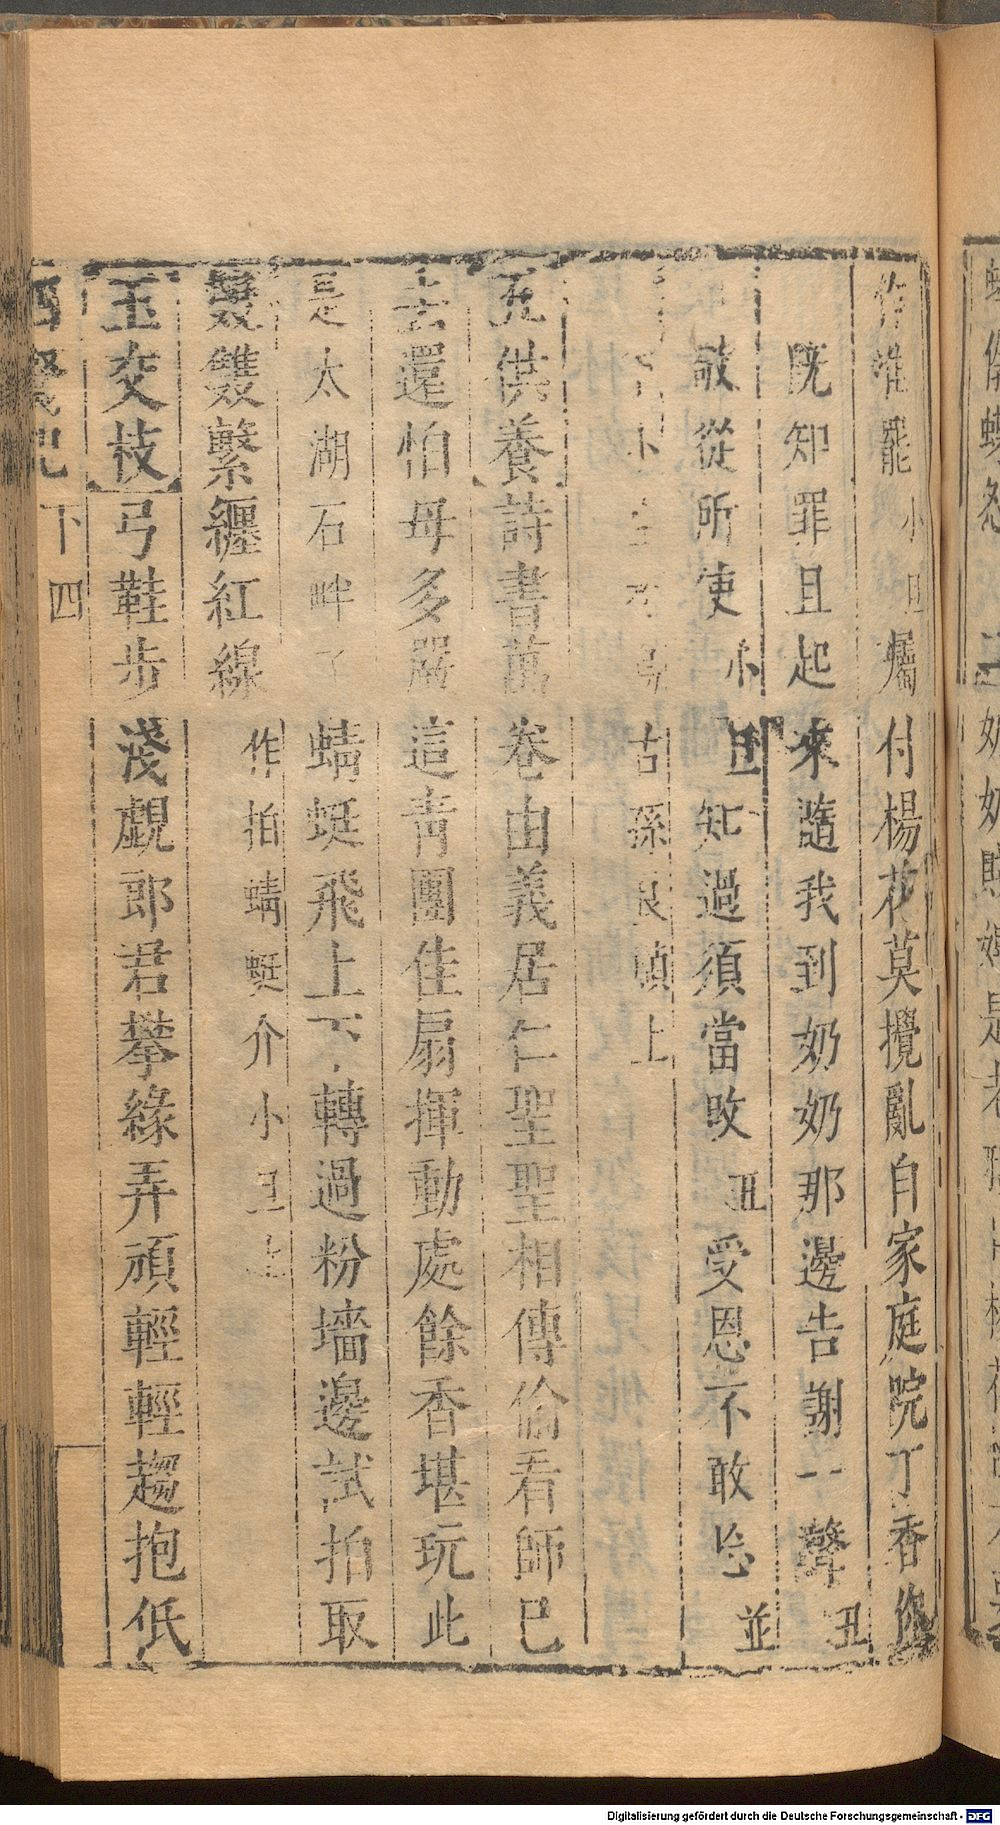 作謔罷小旦囑付楊花莫攪亂自家庭院丁香你
既知罪且起來隨我到奶奶那邊告謝一聲丑
敢從所使小旦知過須當改丑受恩不敢忘並
古孫良頑上
五供養詩書萬卷由義居仁聖聖相傳偷看師已
去還怕母多嚴這靑團佳扇揮動處餘香堪玩此
是太湖石畔了蜻蜓飛上下轉過粉墻邊試拍取
雙雙繫纏紅線作拍蜻蜓介小旦上
玉交枝弓鞋步淺覷郎君攀緣弄頑輕輕趨抱低
下四
Digitalisierung gefördert durch die Deutsche Forschungsgemeinschaft - DFG